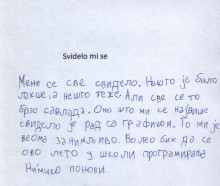 Svidelo mi se
Мени се све свидело. Нешто је било
лакше,а нешто теже. Али све се то
брзо савлада. Оно што ми се највише
свидело је рад са графиком. То ми је
веома занимљиво. Волео бих да се
ово лето у школи програмирања
понови.